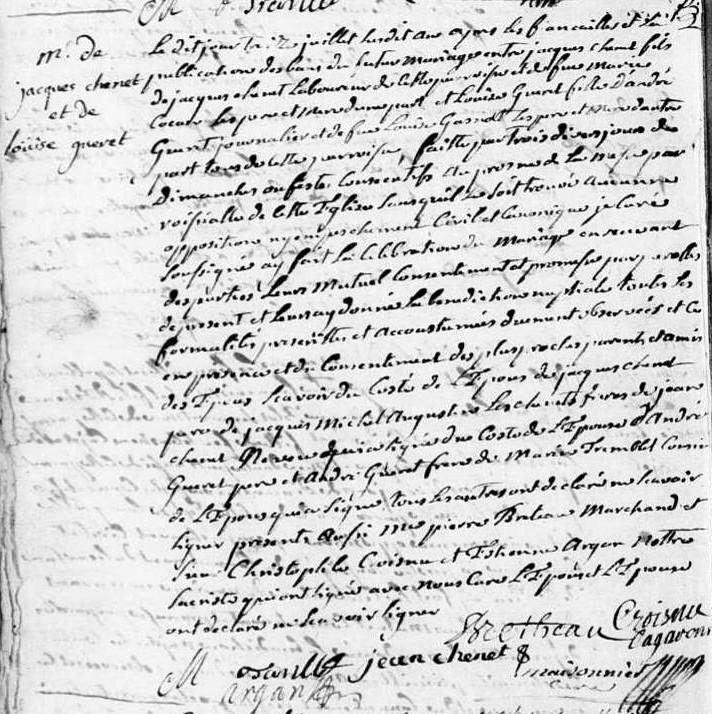 m. de
jacques chenet
et de
louise gueret
Le dit jour treize juillet lesdit aux apres les fiancailles et la
publication des bans du futur Mariage entre jacques chenet fils
de jacques chenet Laboureur de cette parroisse et de feue Marie
les pere et Mere d'une part et Louise Gueret fille d'andré
Gueret journalier et de feue Louise les pere et Mere d'autre
part tous de cette parroisse, faitte par trois divers jours de
Dimanches ou festes Consecutifs au prosne de la Messe par
roissialle de cette Eglise sans qu'il se soit trouvé aucunne
opposition ny empeschement Civil et Canonique je Curé
soussigné ay fait la Celebration du Mariage en recevant
des parties Leurs Mutuel Consentement et promesse par parolles
de present et Leurs ay donné la benediction nuptiale toutes les
formalités prescrittes et accoustumées duement observées et Ce
en presence et du Consentement des plus proches parents et amis
des Epoux Scavoir du Costé de L'Epoux de jacques chenet
pere de jacques Michel Augustin Les chenets freres de jean
chenet Neveu qui a signé du Costé de L'Epouse d'André
Gueret pere et André Gueret frere de Marie Tremblet Cousine
de L'Epoux qui a signé tous Les autres ont declaré ne scavoir
signer presents Aussi Me pierre Marchand et
Sieur Christophle Croisnu et Estienne Argan Nottre
Sacriste qui ont signé avec Nous Curé L'Epoux et L'Epouse
ont declaré ne scavoir signer
Bretheau Croisnu
M jean chenet
argan
curé